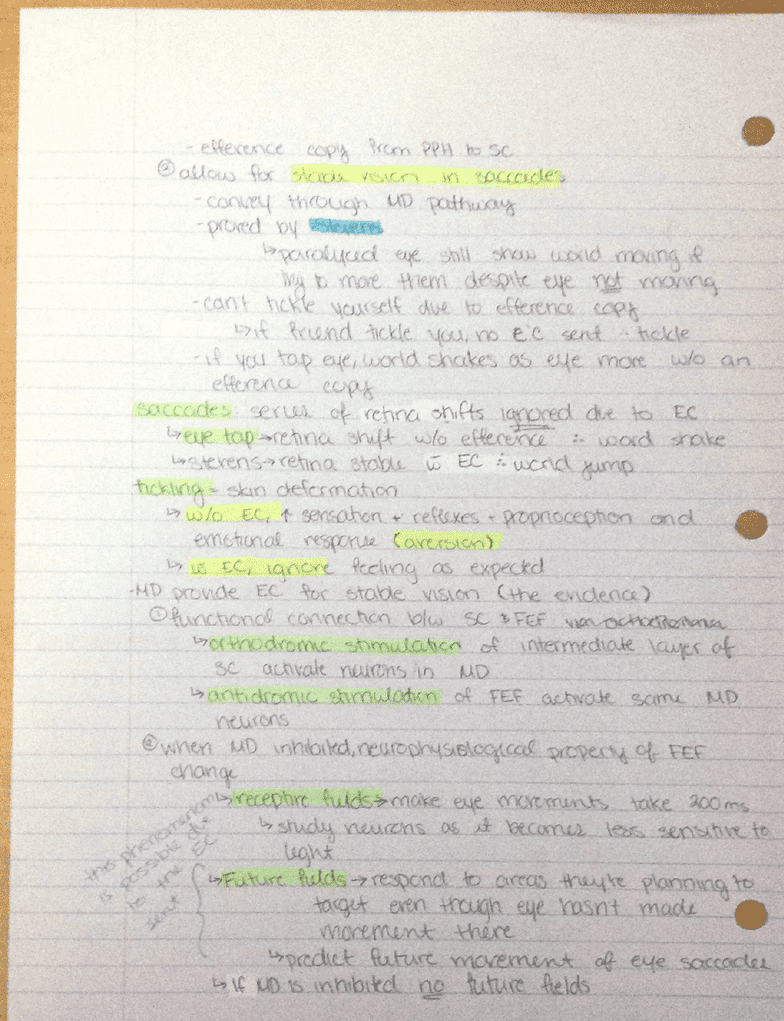 - efference copy from PPH to SC
② allow for stable vision in saccades
- convey through MD pathway
- proved by Stevens
↳ paralyzed eye still show world moving if
try to move them despite eye not moving
- can't tickle yourself due to efference copy
↳ if friend tickle you, no EC sent ∴ tickle
- if you tap eye, world shakes as eye move w/o an
efference copy
saccades: series of retina shifts ignored due to EC
↳ eye tap → retina shift w/o efference ∴ word shake
↳ stevens → retina stable w̄ EC ∴ world jump
tickling = skin deformation
↳ w/o EC, ↑ sensation + reflexes - proprioception and
emotional response (aversion)
↳ w̄ EC, ignore feeling as expected
- MD provide EC for stable vision (the evidence)
① functional connection b/w SC & FEF via
↳ orthodromic stimulation of intermediate layer of
SC activate neurons in MD
↳ antidromic stimulation of FEF activate same MD
neurons
② when MD inhibited, neurophysiological property of FEF
change
↳ receptive fields → make eye movements take 200ms
↳ study neurons as it becomes less sensitive to
light
↳ Future fields → respond to areas they're planning to
target even though eye hasn't made
movement there
↳ predict future movement of eye saccades
↳ If MD is inhibited no future fields
this phenomenom
is possible due
to the EC
sent